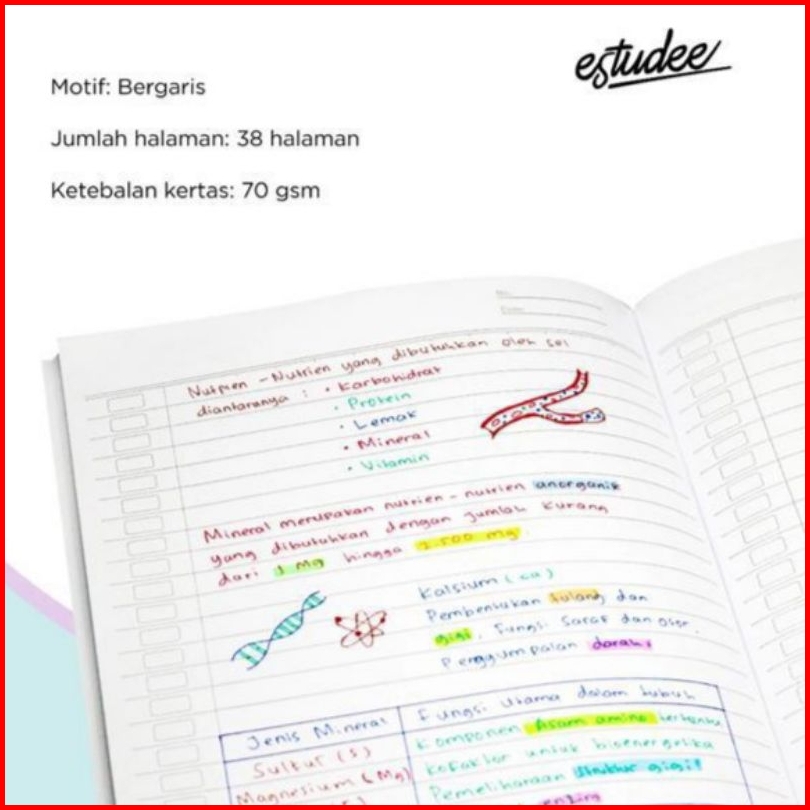 estudee
Motif: Bergaris
Jumlah halaman: 38 halaman
Ketebalan kertas: 70 gsm
Nutrien - Nutrien yang dibutuhkan oleh sel
diantaranya : • Karbohidrat
• Protein
• Lemak
• Mineral
• Vitamin
Mineral merupakan nutrien - nutrien anorganik
yang dibutuhkan dengan jumlah kurang
dari 1 Mg hingga 2.500 mg.
Kalsium (Ca)
Pembentukan tulang dan
gigi, fungsi saraf dan otot,
Penggumpalan darah,
Jenis Mineral
Fungsi Utama dalam tubuh
Sulfur (S)
Komponen Asam amino tertentu
Magnesium (Mg)
Kofaktor untuk bioenergetika
Pemeliharaan struktur gigi